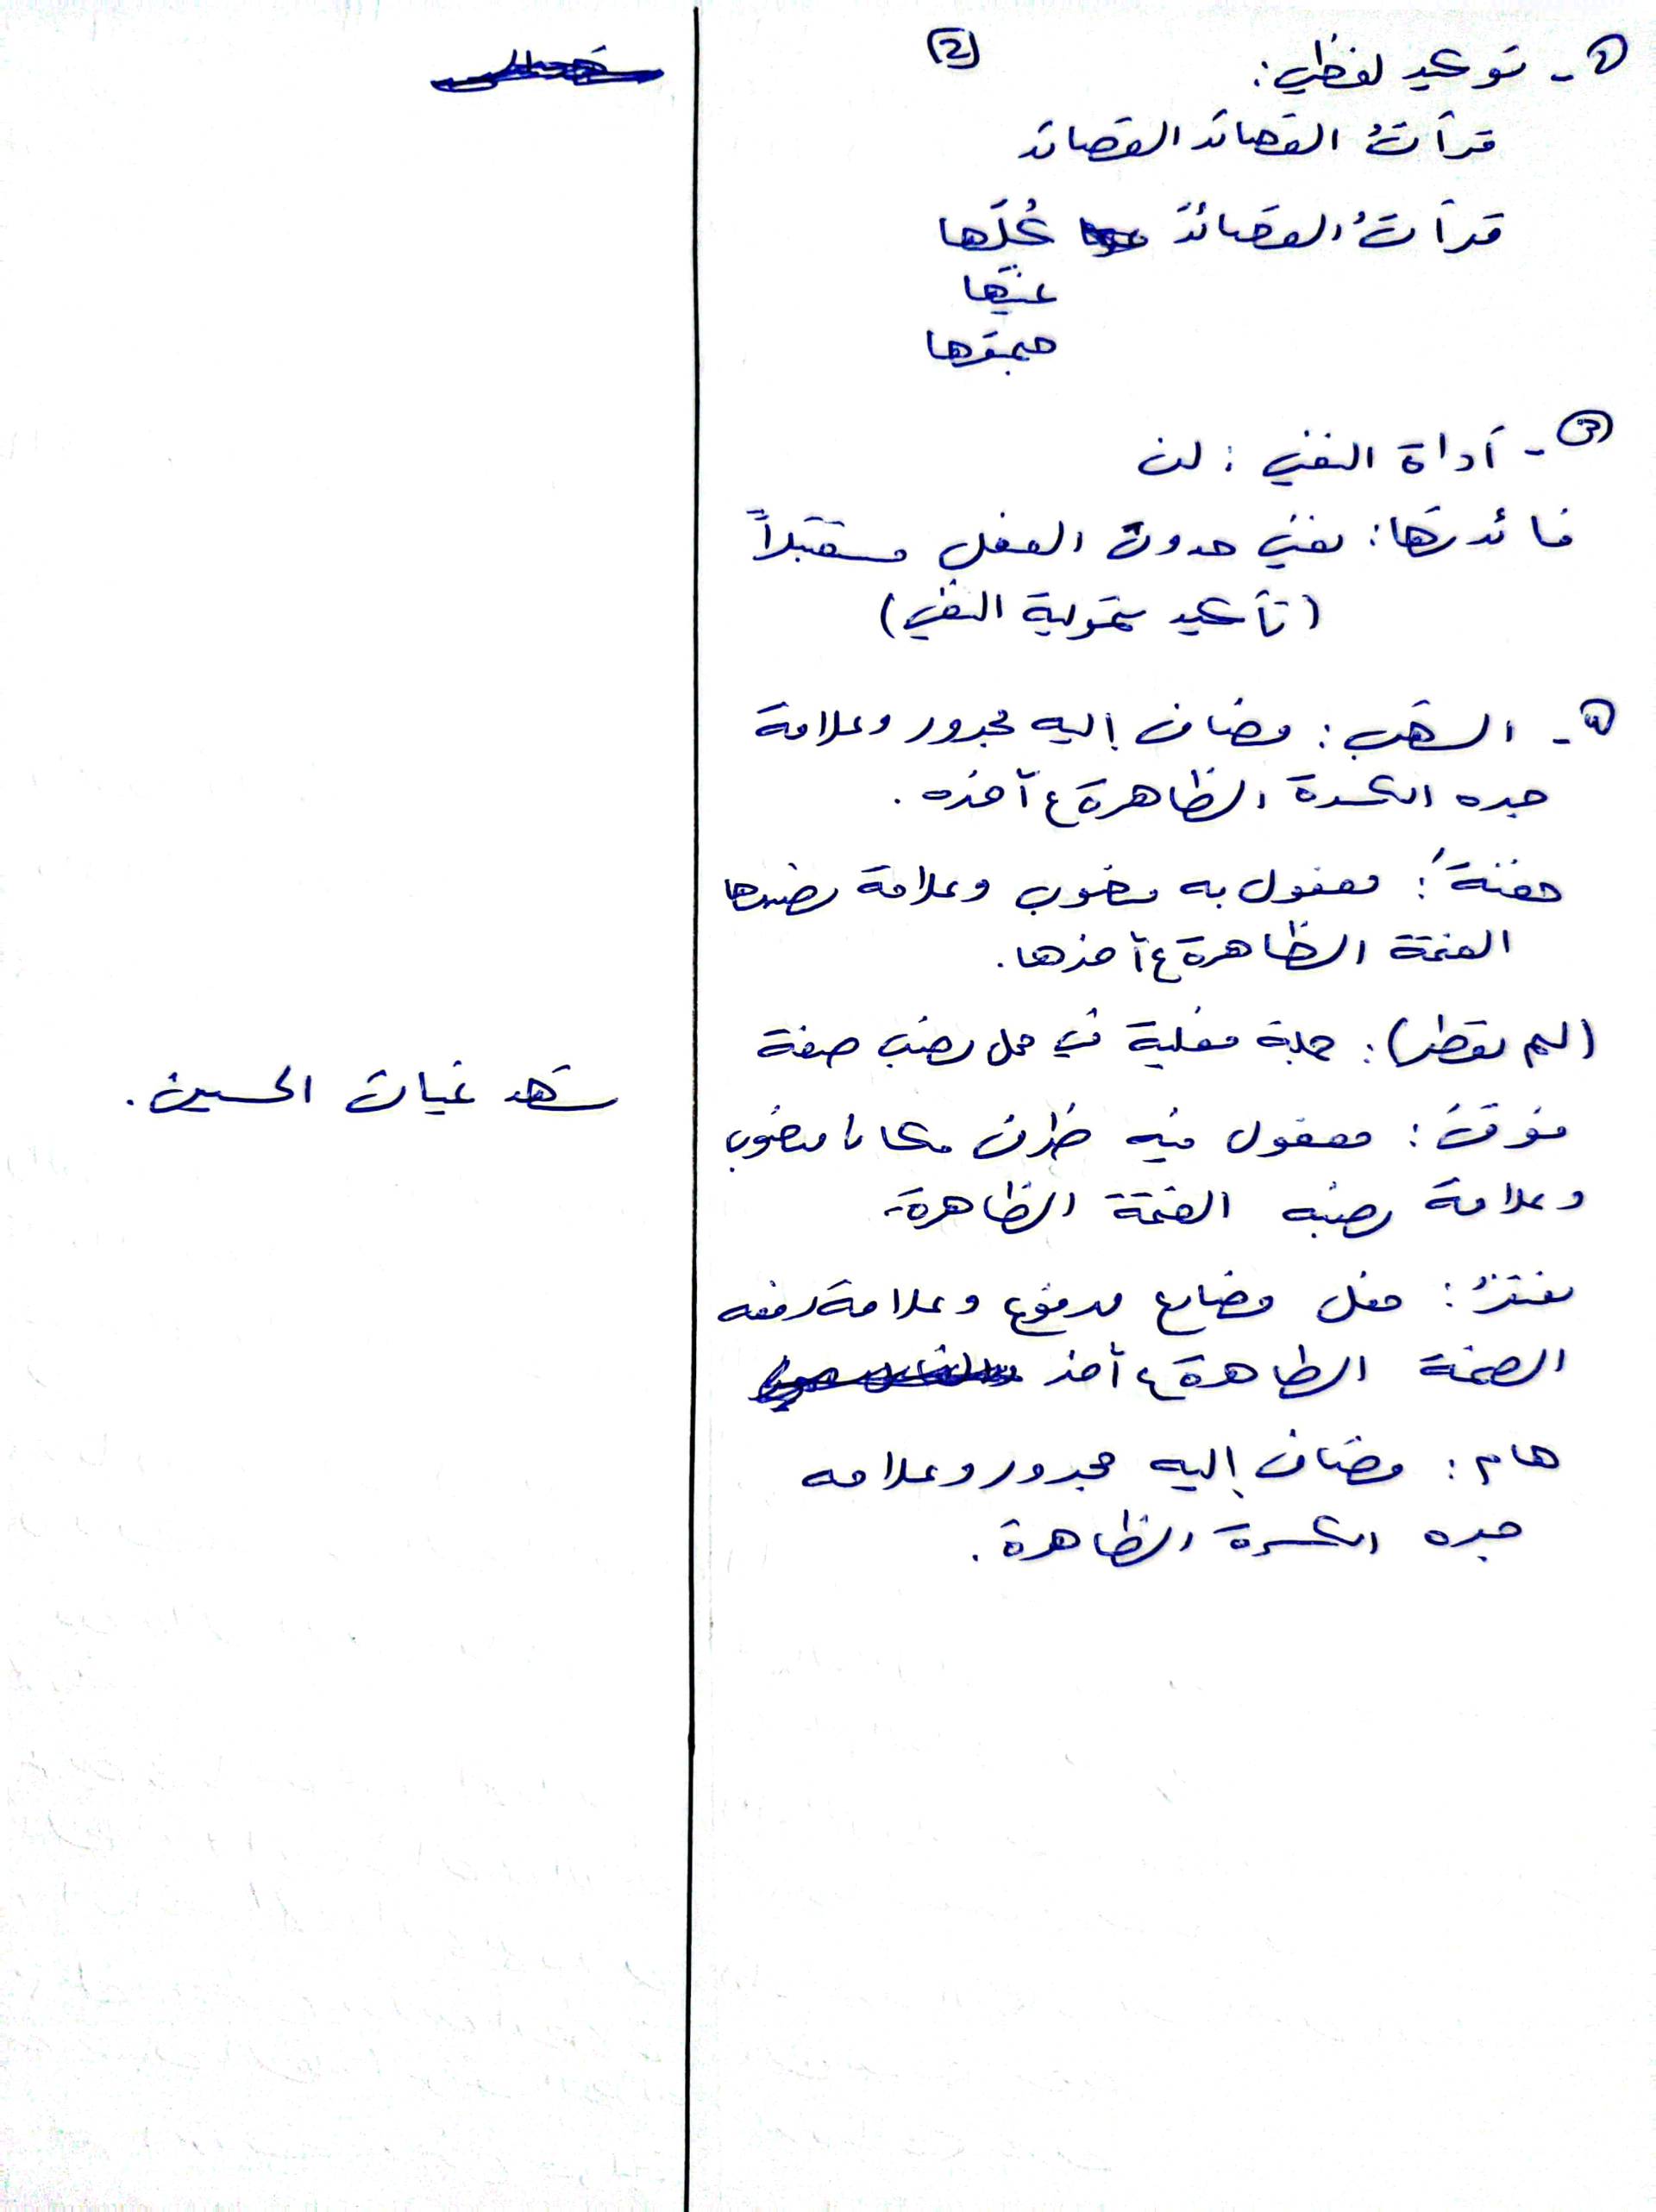 (2)
① - توكيد لفظي:
قرأتُ القصائد القصائد
قرأتُ القصائدَ كُلَّها
عينَها
جميعَها
③ - أداة النفي: لن
فائدتها: نفي حدوث الفعل مستقبلاً
(تأكيد شمولية النفي)
- الشهب: مضاف إليه مجرور وعلامة
جره الكسرة الظاهرة ع آخره.
حفنةً: مفعول به منصوب وعلامة نصبها
الفتحة الظاهرة ع آخرها.
(لم تقطر): جملة فعلية في محل نصب صفة
فوقَ: مفعول فيه ظرف مكان منصوب
وعلامة نصبه الفتحة الظاهرة.
نفتقدُ: فعل مضارع مرفوع وعلامة رفعه
الضمة الظاهرة ع آخر
هام: مضاف إليه مجرور وعلامة
جره الكسرة الظاهرة.
شهد غياث الحسين.